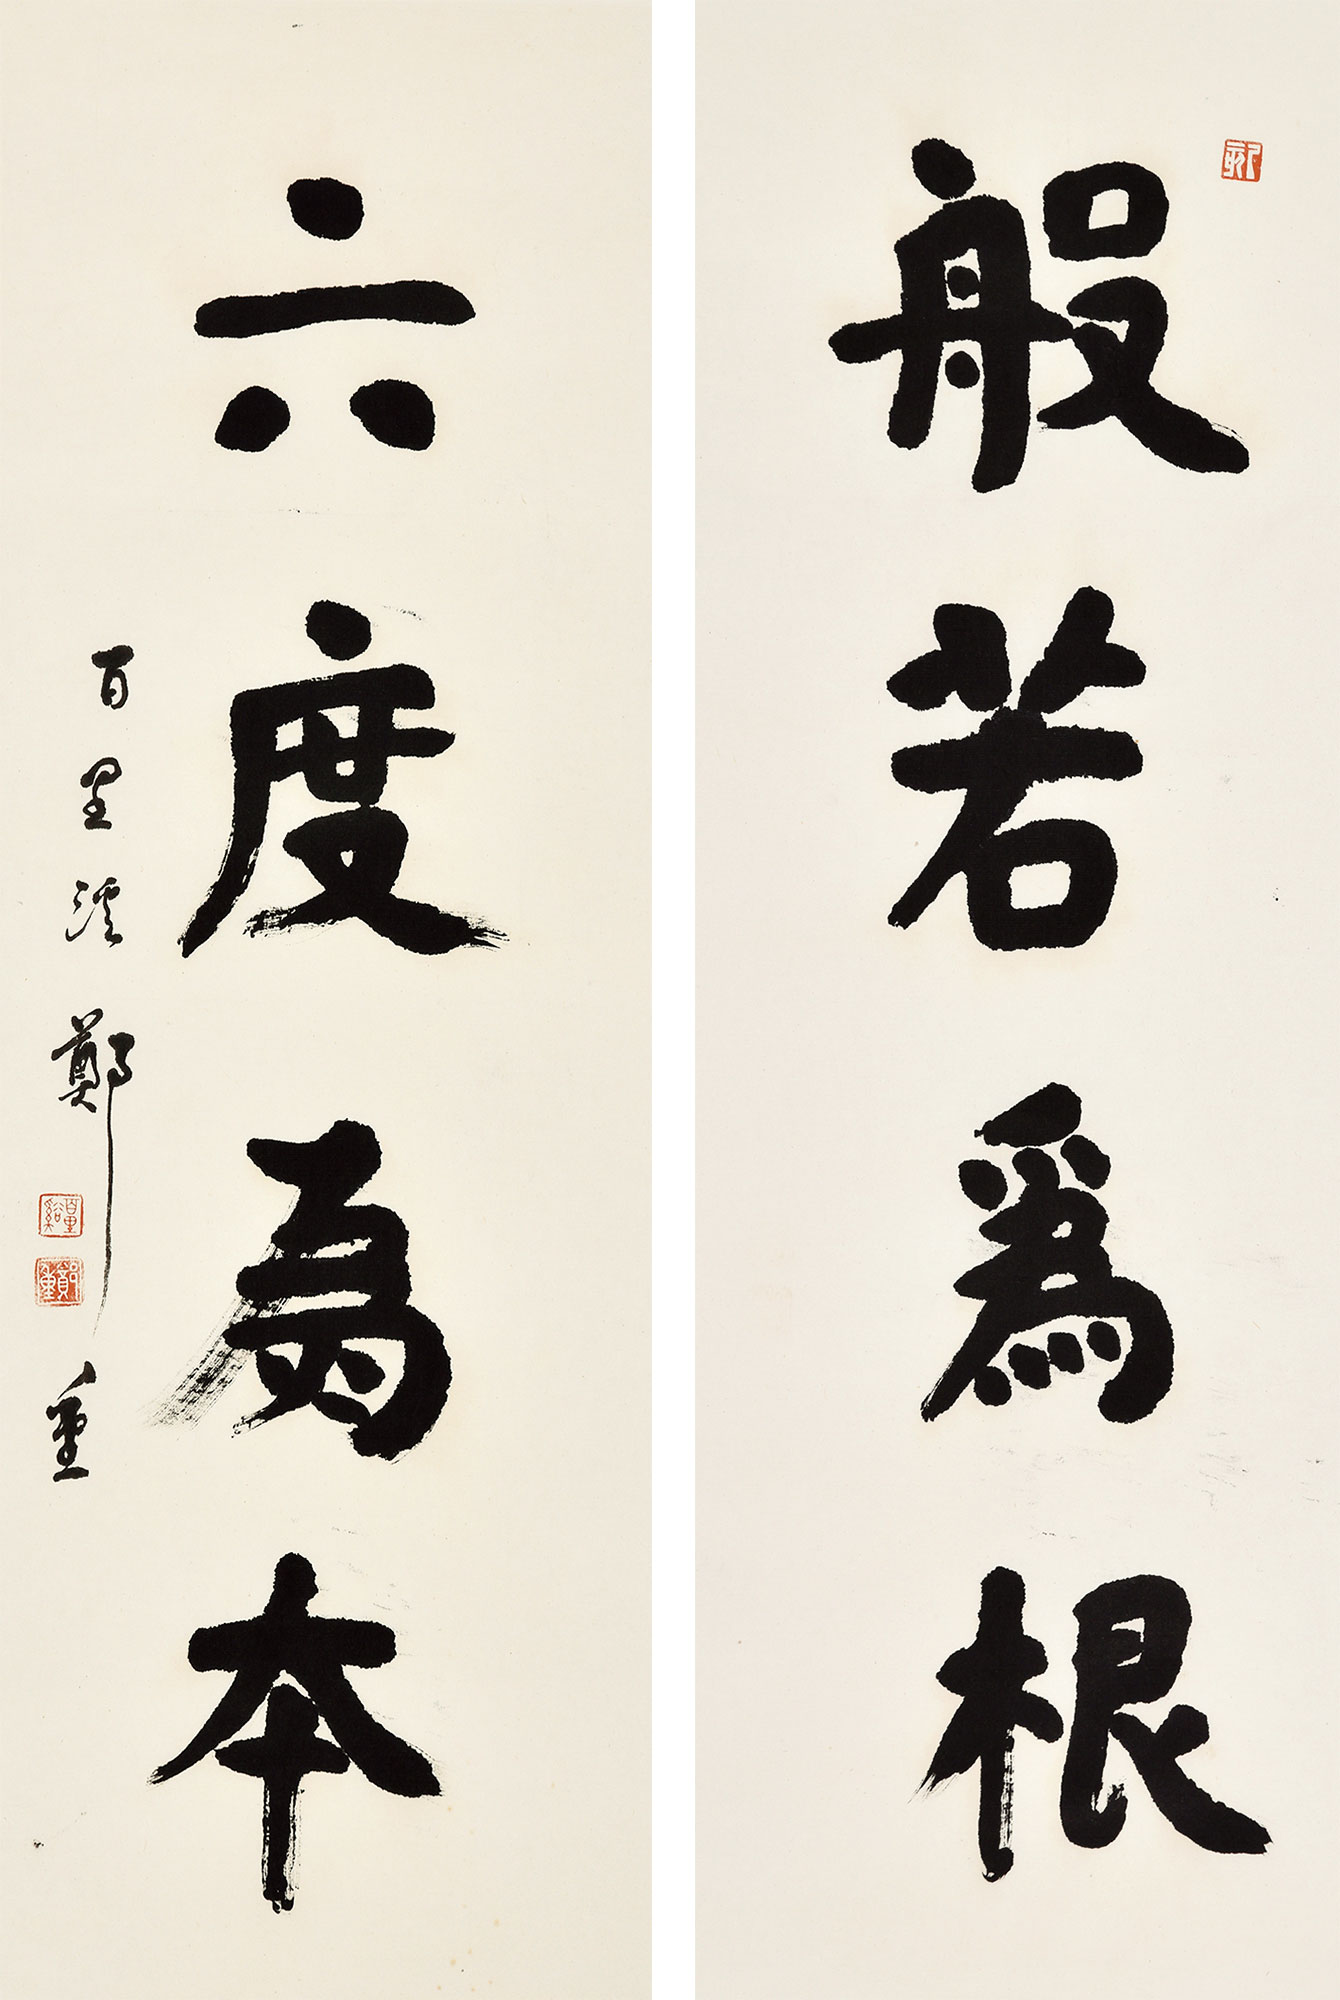 般若為根
六度為本
百里溪鄭重
百里谿
鄭重